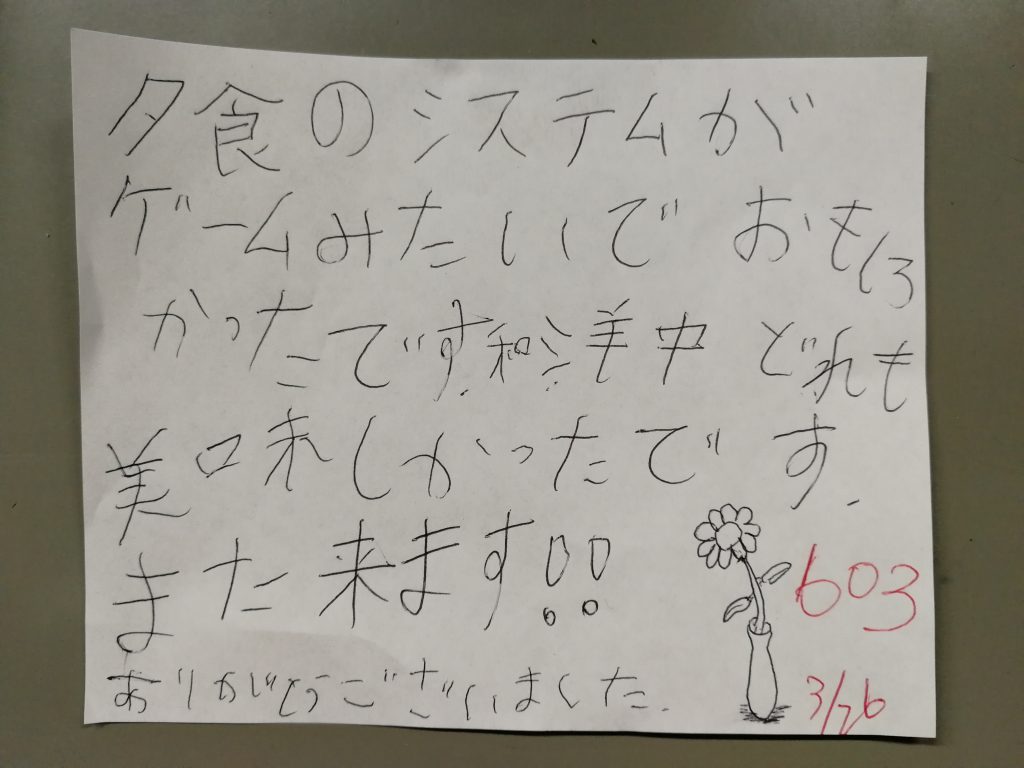 夕食のシステムが
ゲームみたいでおもしろ
かったです.和洋中どれも
美味しかったです.
また来ます!!
ありがとうございました.
603
3/26